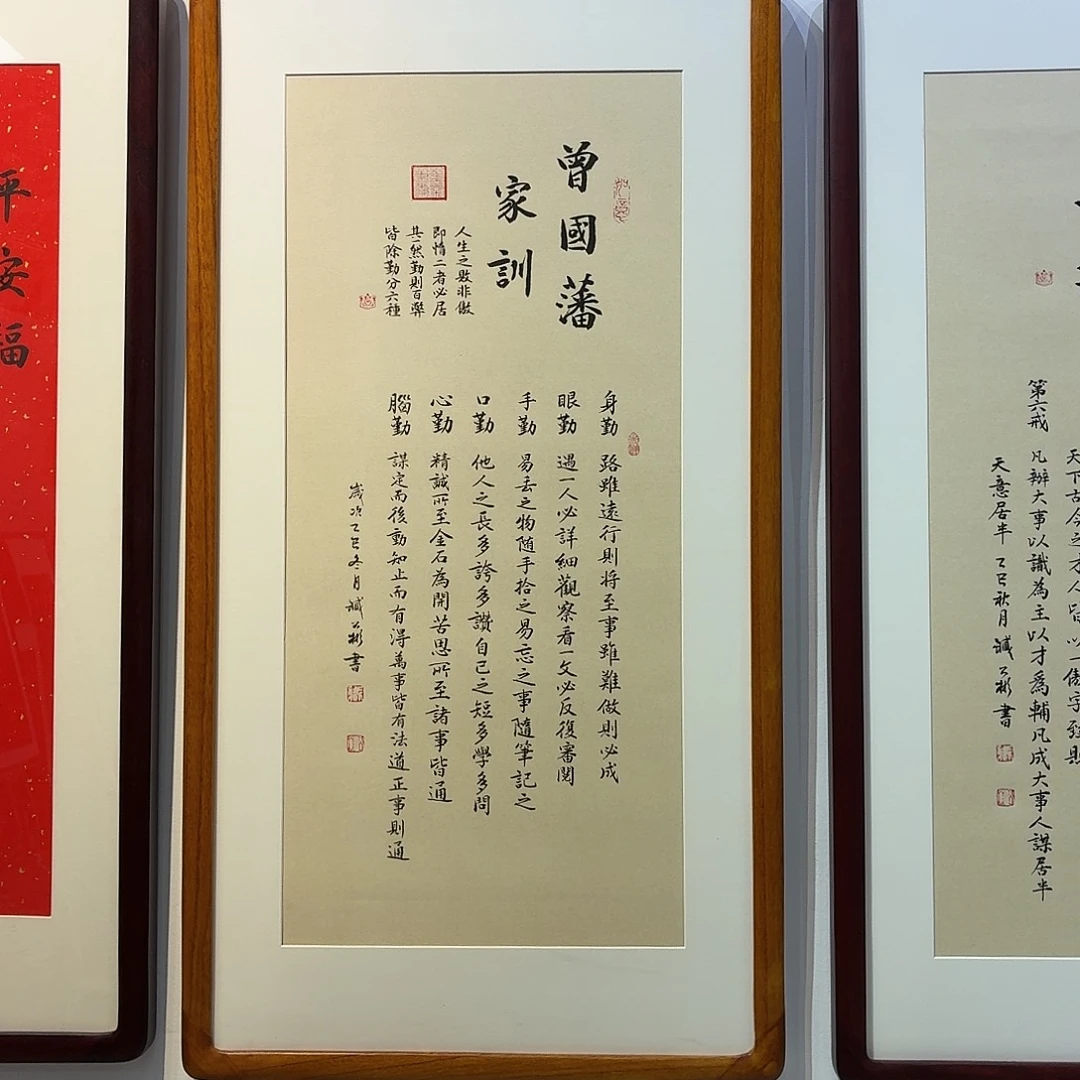 平安福
曾國藩
家訓
人生之敗非傲
即惰二者必居
其一然勤則百弊
皆除勤分六種
身勤 路雖遠行則將至事雖難做則必成
眼勤 遇一人必詳細觀察看一文必反復審閱
手勤 易丢之物随手拾之易忘之事隨筆記之
口勤 他人之長多誇多讚自己之短多學多問
心勤 精誠所至金石為開苦思所至諸事皆通
腦勤 謀定而後動知止而有得萬事皆有法道正事則通
歲次乙巳冬月 臧公彬書
天下古今之才人皆以一傲字致
第六戒 凡辦大事以識為主以才爲輔凡成大事人謀居半
天意居半 乙巳秋月 臧公彬書